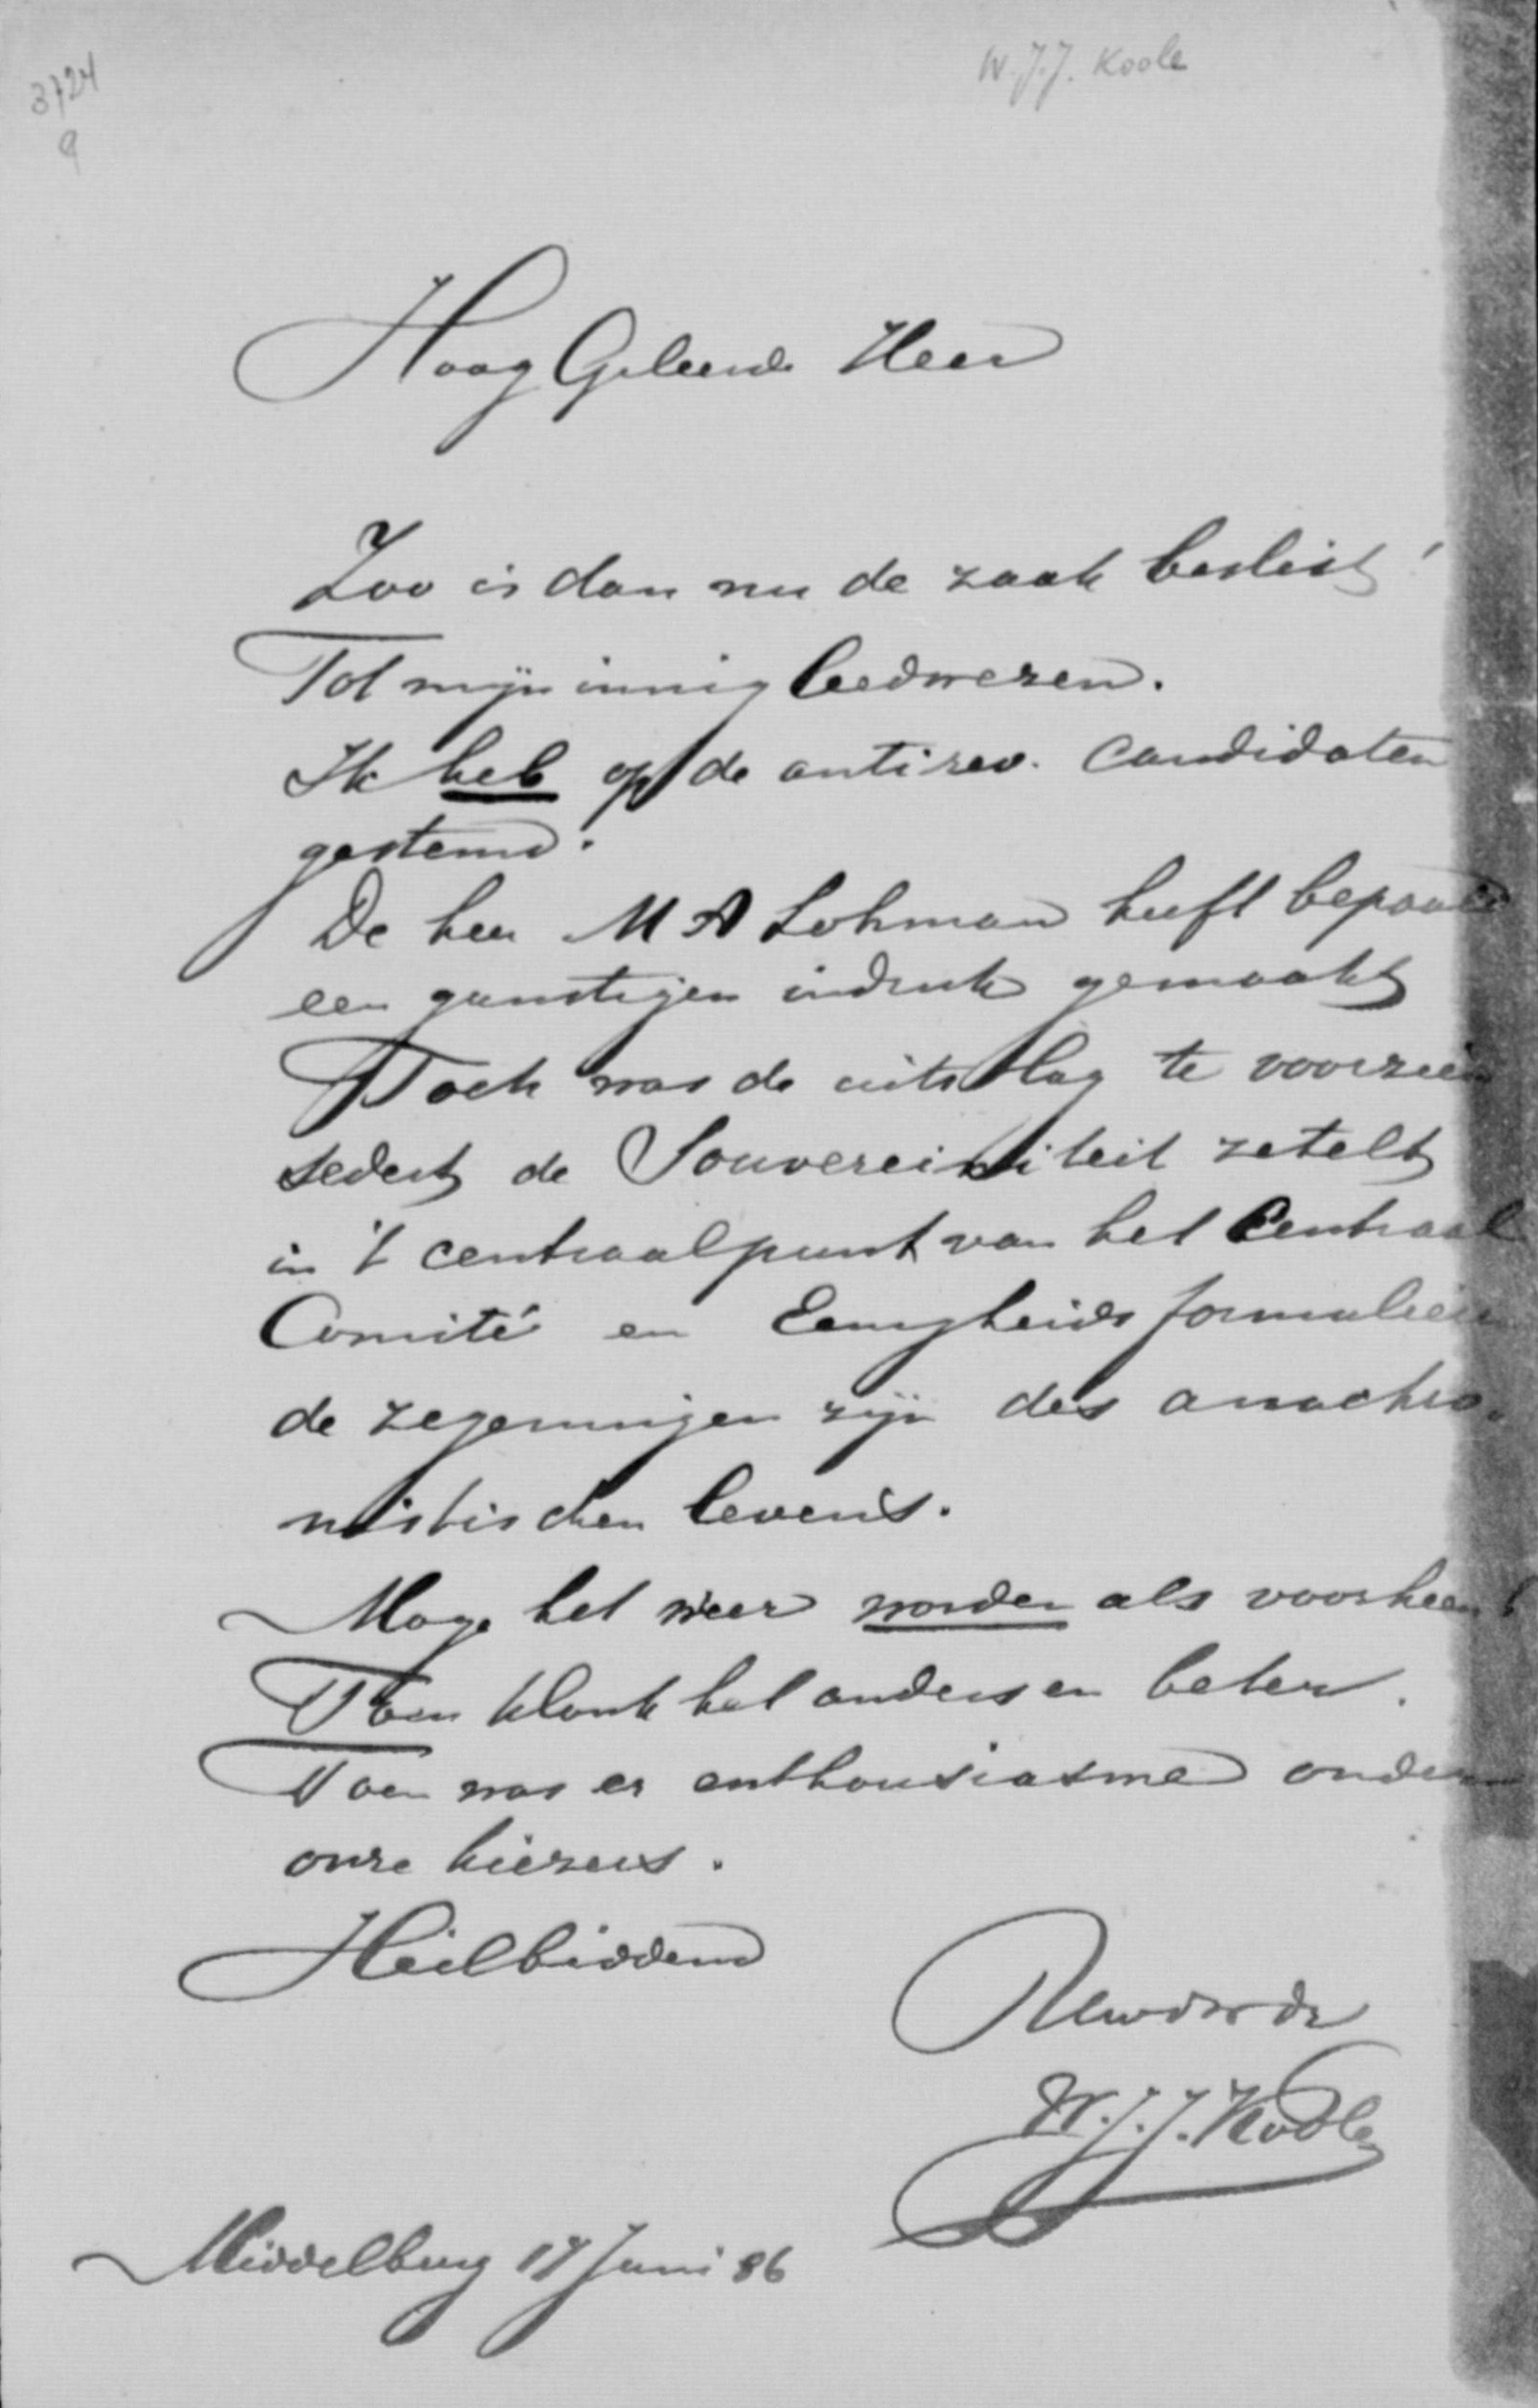 W.J.J. Koole
3724
9
Hoog Geleerde Heer
Zoo is dan nu de zaak beslist!
Tot mijn innig leedwezen.
Ik heb op de antirev. Candidaten
gestemd.
De heer M A Lohman heeft bepaald
een gunstigen indruk gemaakt
Toch was de uitslag te voorzien
sedert de Souvereiniteit zetelt
in 't centraalpunt van het Centraal
Comité en Eenigheids formulieren
de zegeningen zijn des anachro-
nistischen levens.
Moge het weer worden als voorheen!
Toen klonk het anders en beter.
Toen was er enthousiasme onder
onze kiezers.
Heilbiddend
W.J.J. Koole
Middelburg 17 Juni 86